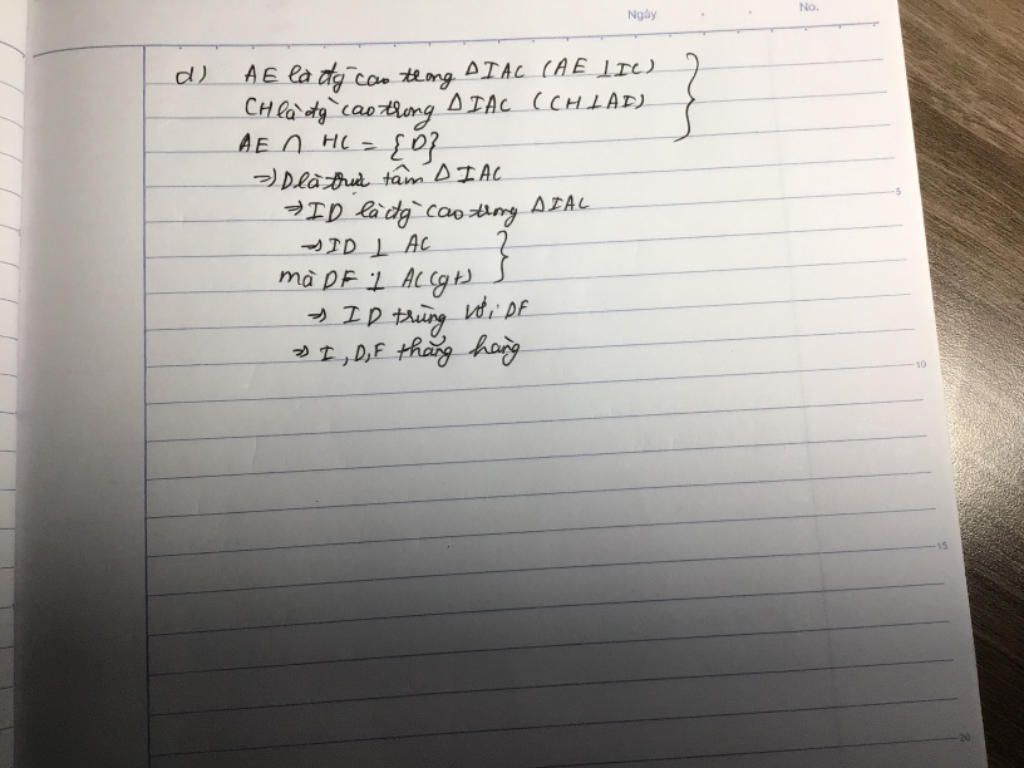 Ngày . . No.
d) AE là đg` cao trong ΔIAC (AE ⊥ IC)
CH là đg` cao trong ΔIAC (CH ⊥ AI)
AE ∩ HC = {D}
=> D là trực tâm ΔIAC
=> ID là đg` cao trong ΔIAC
=> ID ⊥ AC
mà DF ⊥ AC (gt)
=> ID trùng với DF
=> I, D, F thẳng hàng
5
10
15
20